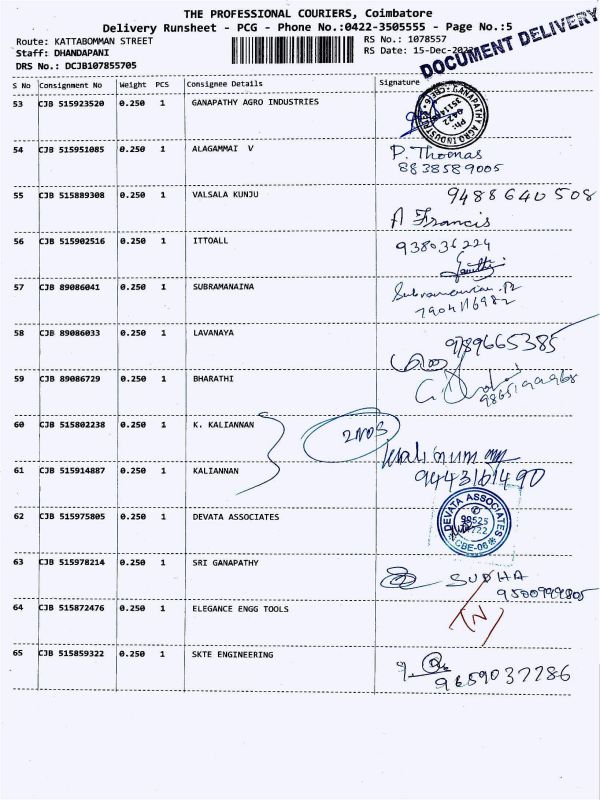 THE PROFESSIONAL COURIERS, Coimbatore
Delivery Runsheet - PCG - Phone No.:0422-3505555 - Page No.:5
Route: KATTABOMMAN STREET
Staff: DHANDAPANI
DRS No.: DCJB107855705
RS No.: 1078557
RS Date: 15-Dec-202
DOCUMENT DELIVERY
S No Consignment No Weight PCS Consignee Details Signature
53 CJB 515923520 0.250 1 GANAPATHY AGRO INDUSTRIES
GANAPATHY AGRO INDUSTRIES CBE-6
Ph: 0422
54 CJB 515951085 0.250 1 ALAGAMMAI V P. Thomas
8838589005
55 CJB 515889308 0.250 1 VALSALA KUNJU 9488640508
A Francis
56 CJB 515902516 0.250 1 ITTOALL 938036224
57 CJB 89086041 0.250 1 SUBRAMANAINA
7904116982
58 CJB 89086033 0.250 1 LAVANAYA 9789665385
59 CJB 89086729 0.250 1 BHARATHI
60 CJB 515802238 0.250 1 K. KALIANNAN 2NOS
61 CJB 515914887 0.250 1 KALIANNAN 9443161490
62 CJB 515975805 0.250 1 DEVATA ASSOCIATES
DEVATA ASSOCIATES
CBE-06
63 CJB 515978214 0.250 1 SRI GANAPATHY SUDHA
9500999805
64 CJB 515872476 0.250 1 ELEGANCE ENGG TOOLS
65 CJB 515859322 0.250 1 SKTE ENGINEERING
9659037286